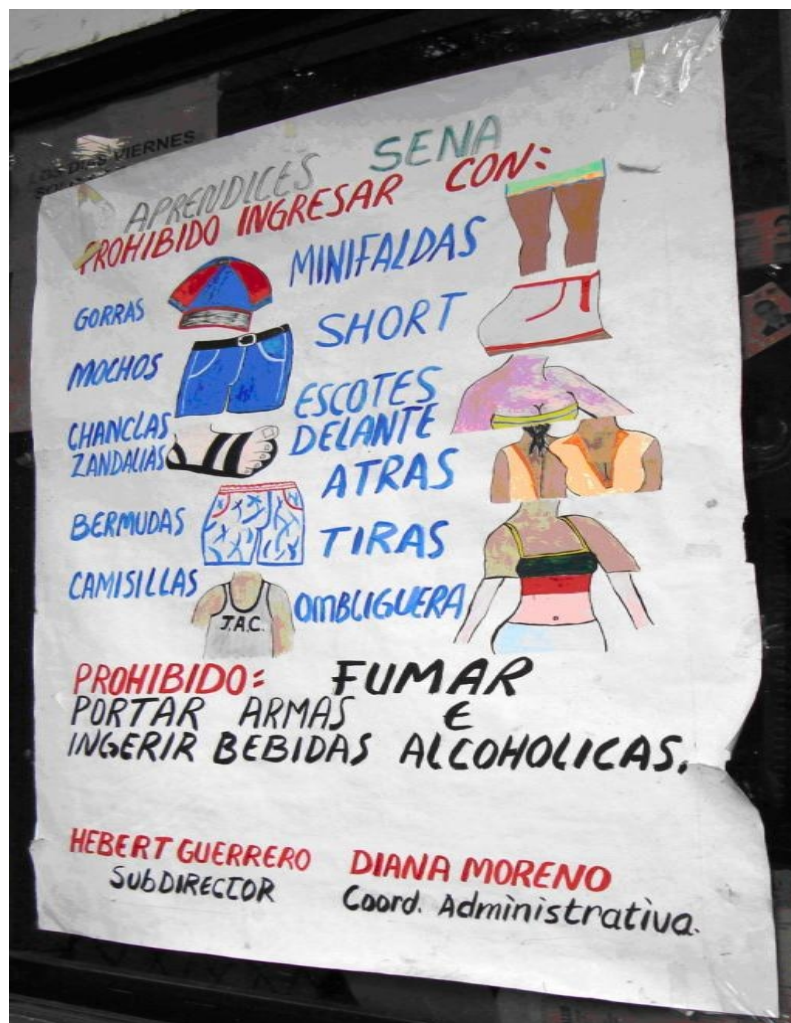 LOS DIAS VIERNES
APRENDICES SENA
PROHIBIDO INGRESAR CON:
GORRAS
MOCHOS
CHANCLAS
ZANDALIAS
BERMUDAS
CAMISILLAS
J.A.C.
MINIFALDAS
SHORT
ESCOTES
DELANTE
ATRAS
TIRAS
OMBLIGUERA
PROHIBIDO: FUMAR
PORTAR ARMAS E
INGERIR BEBIDAS ALCOHOLICAS.
HEBERT GUERRERO
SUbDIRECTOR
DIANA MORENO
Coord. Administrativa.